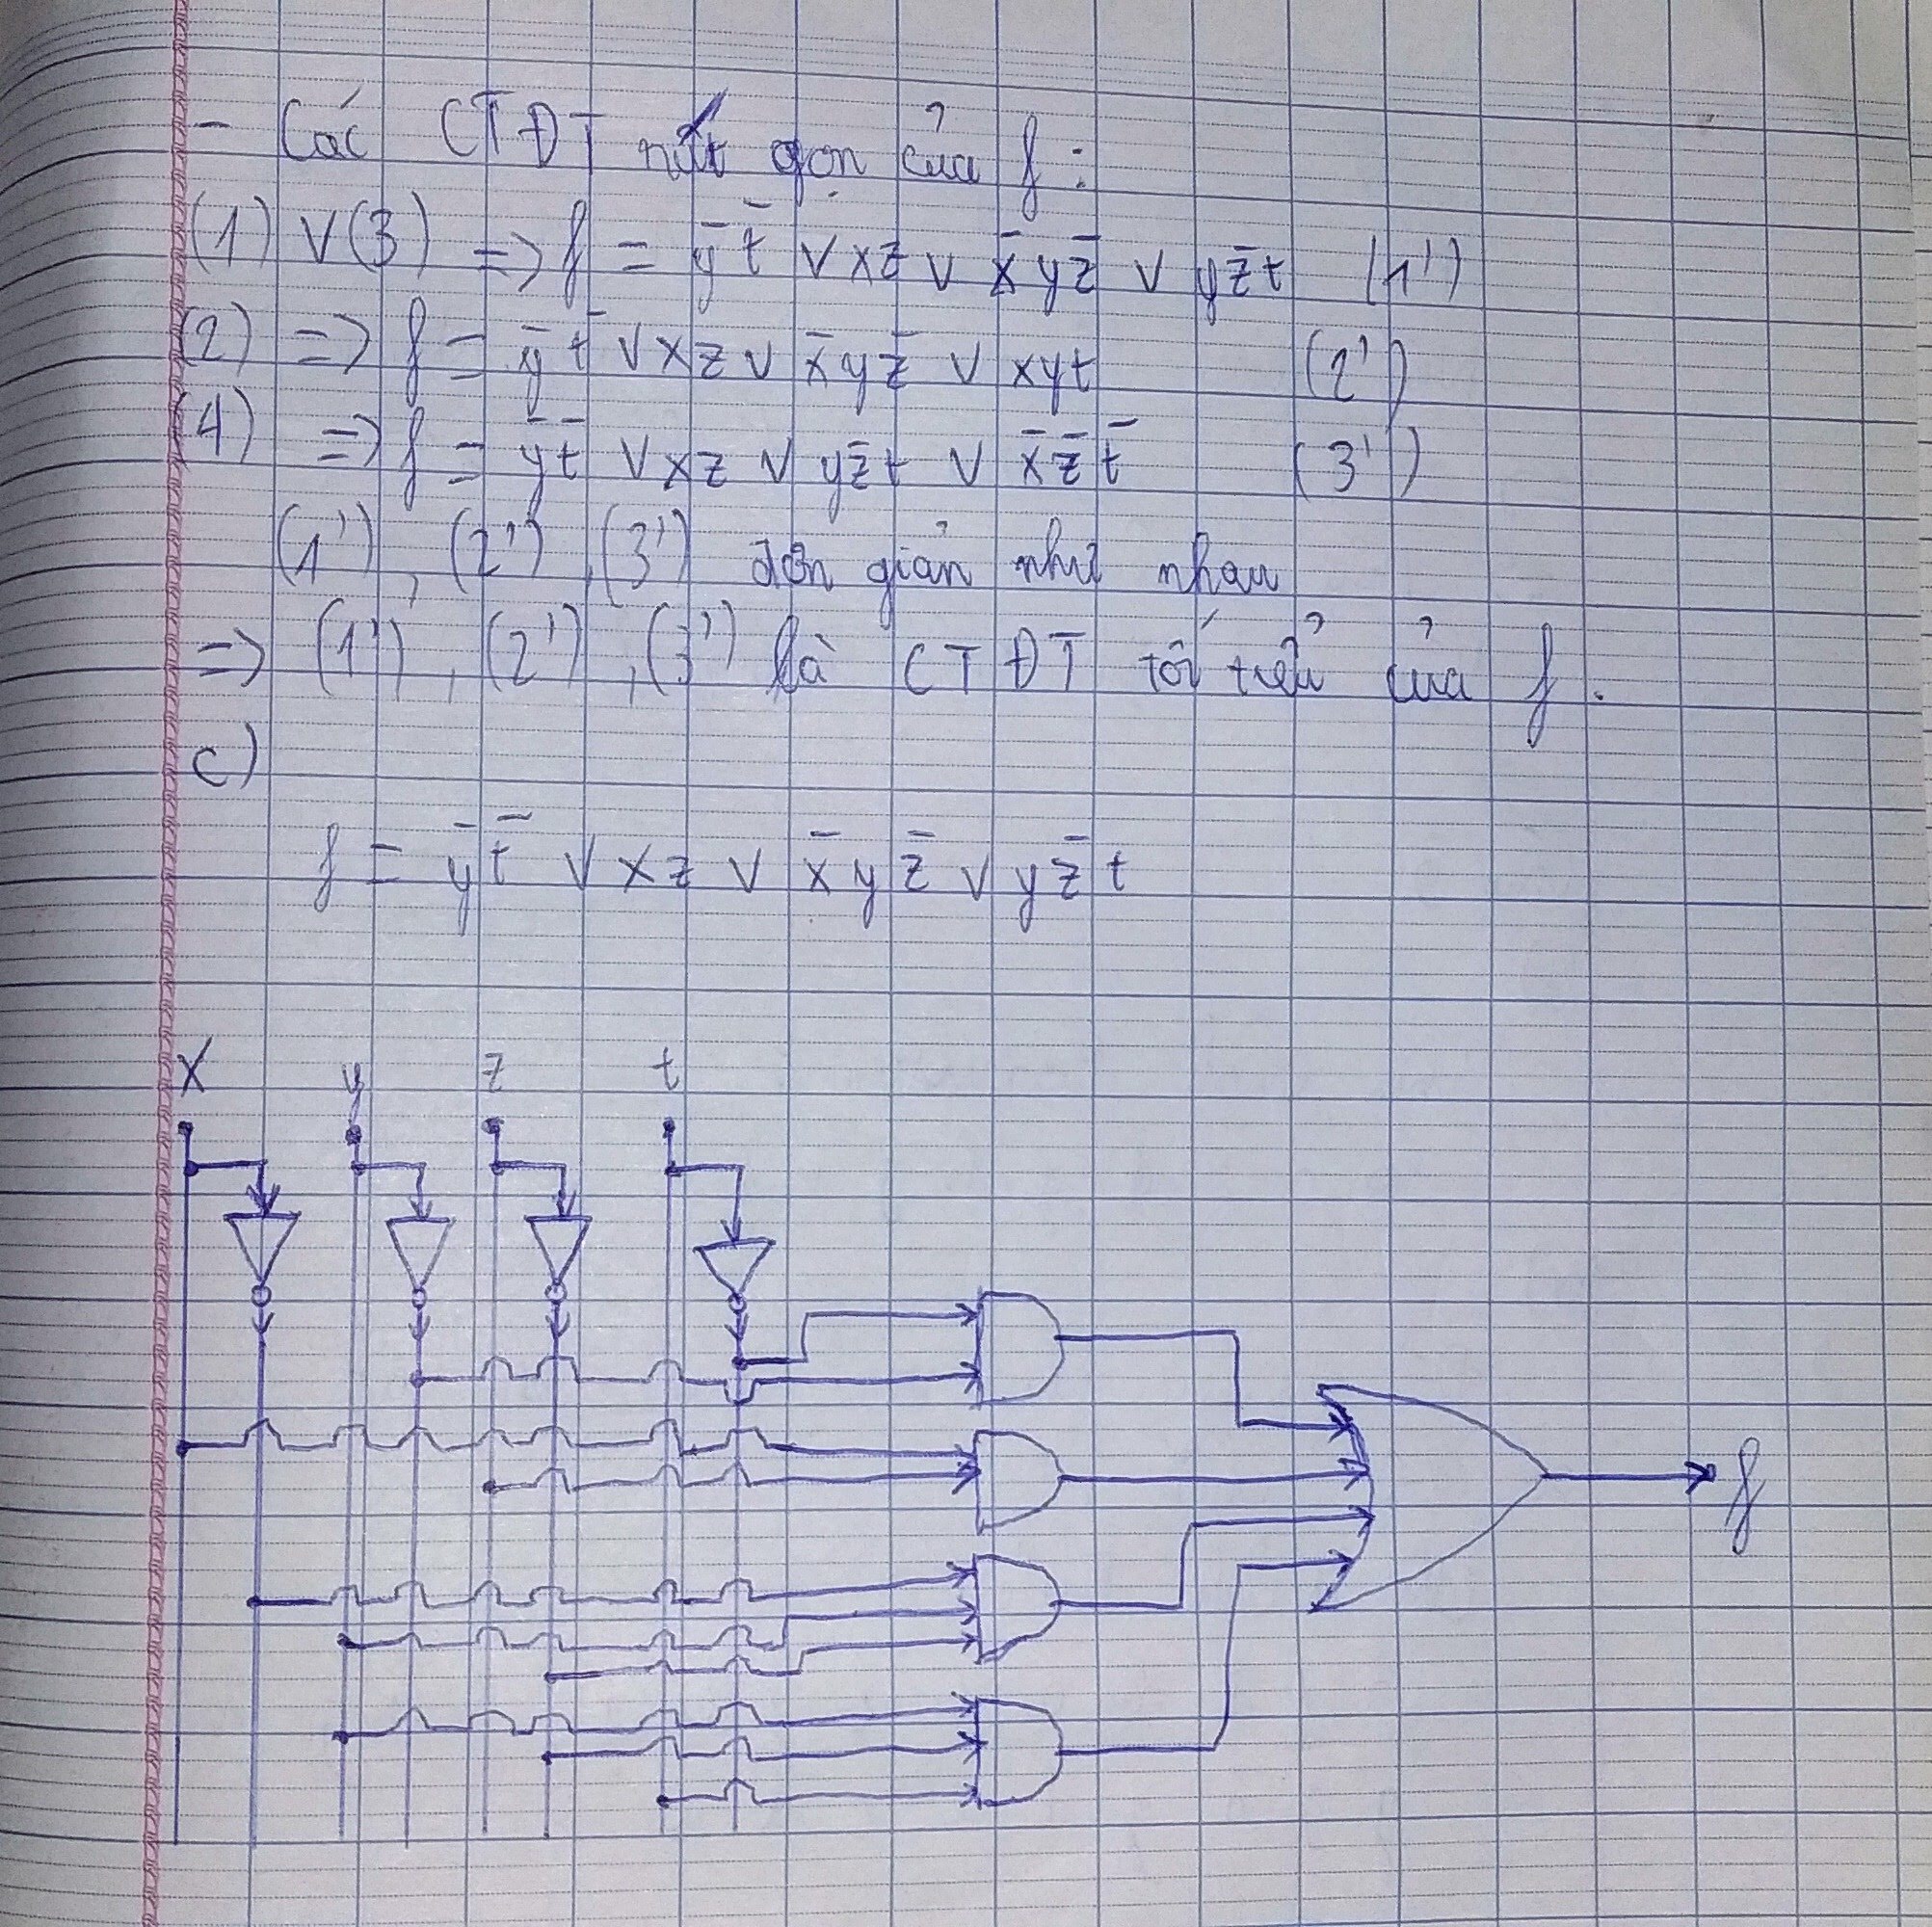 - Các CTĐT rút gọn của f:
(1) V (3) => f = y̅ t̅ V x z V x̅ y z̅ V y z̅ t (1')
(2) => f = y̅ t̅ V x z V x̅ y z̅ V x y t (2')
(4) => f = y̅ t̅ V x z V y z̅ t V x̅ z̅ t̅ (3')
(1'), (2'), (3') đơn giản như nhau
=> (1'), (2'), (3') là CTĐT tối tiểu của f.
c)
f = y̅ t̅ V x z V x̅ y z̅ V y z̅ t
x y z t
f